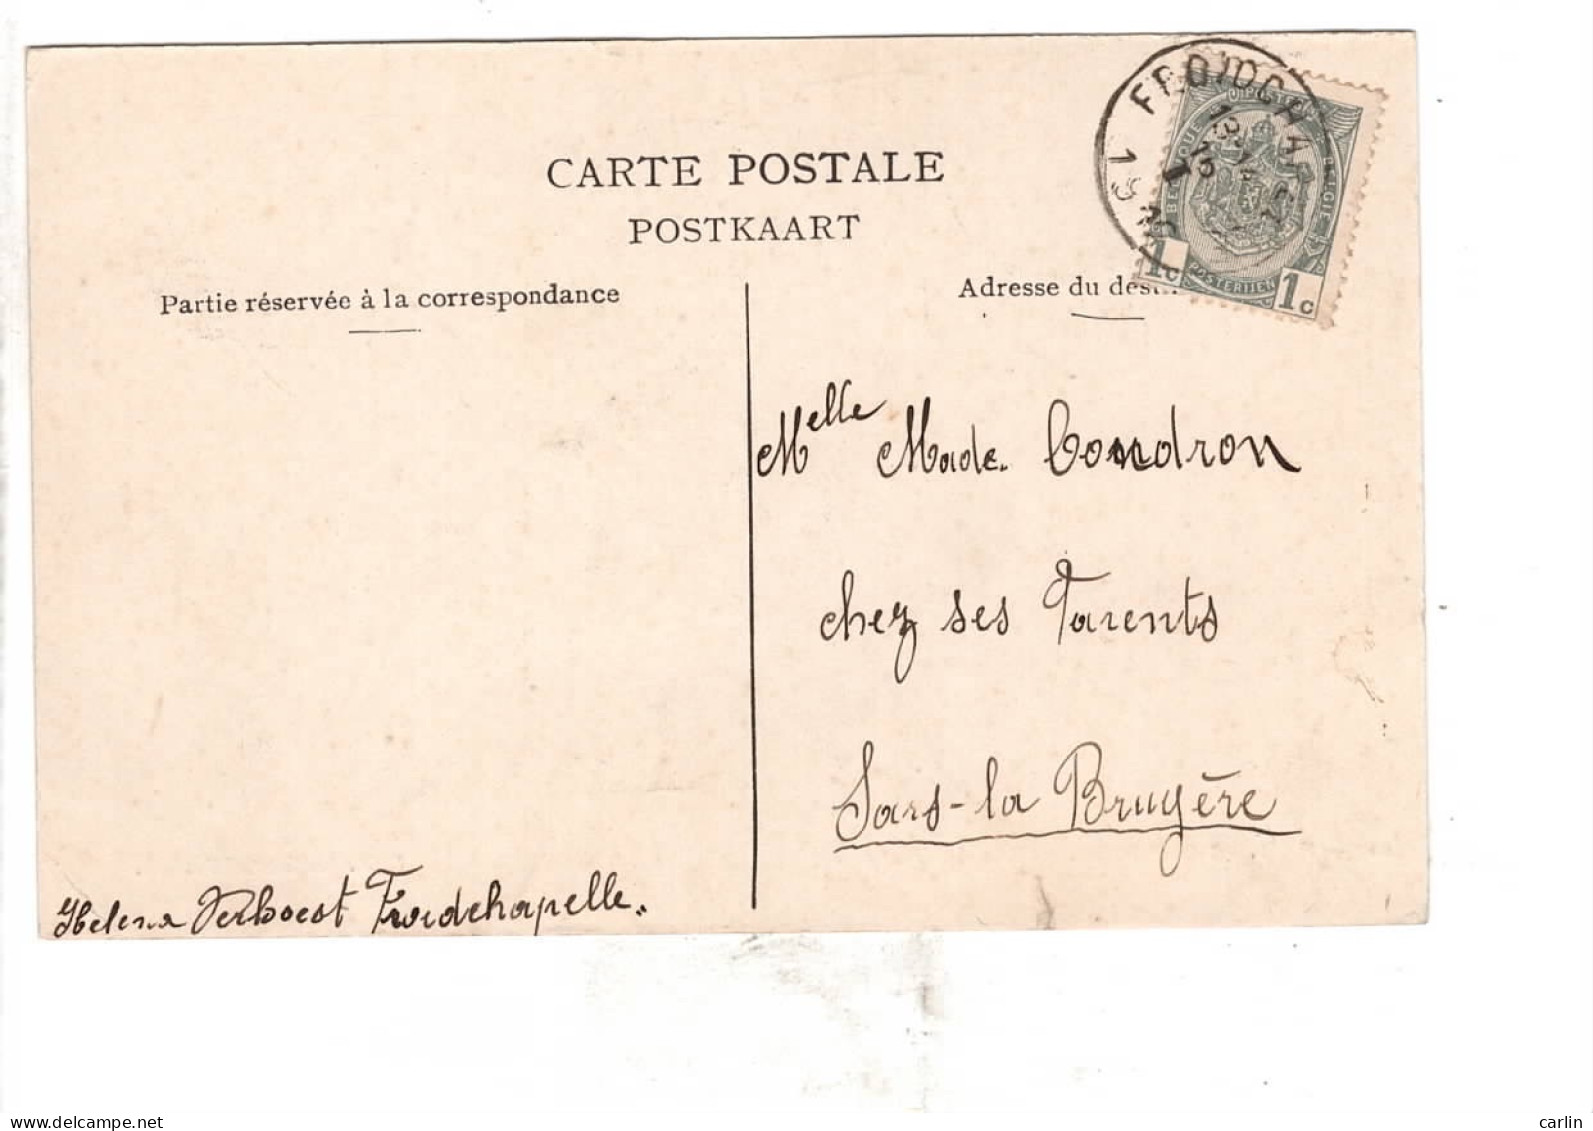 CARTE POSTALE
POSTKAART
Partie réservée à la correspondance
Adresse du dest
FROIDCHAPELLE
BELGIQUE
POSTES
BELGIE
POSTERIJEN
1c
1c
Melle Made. Condron
chez ses Parents
Sars-la Bruyère
Helena Verhoest Froidchapelle.
www.delcampe.net
carlin